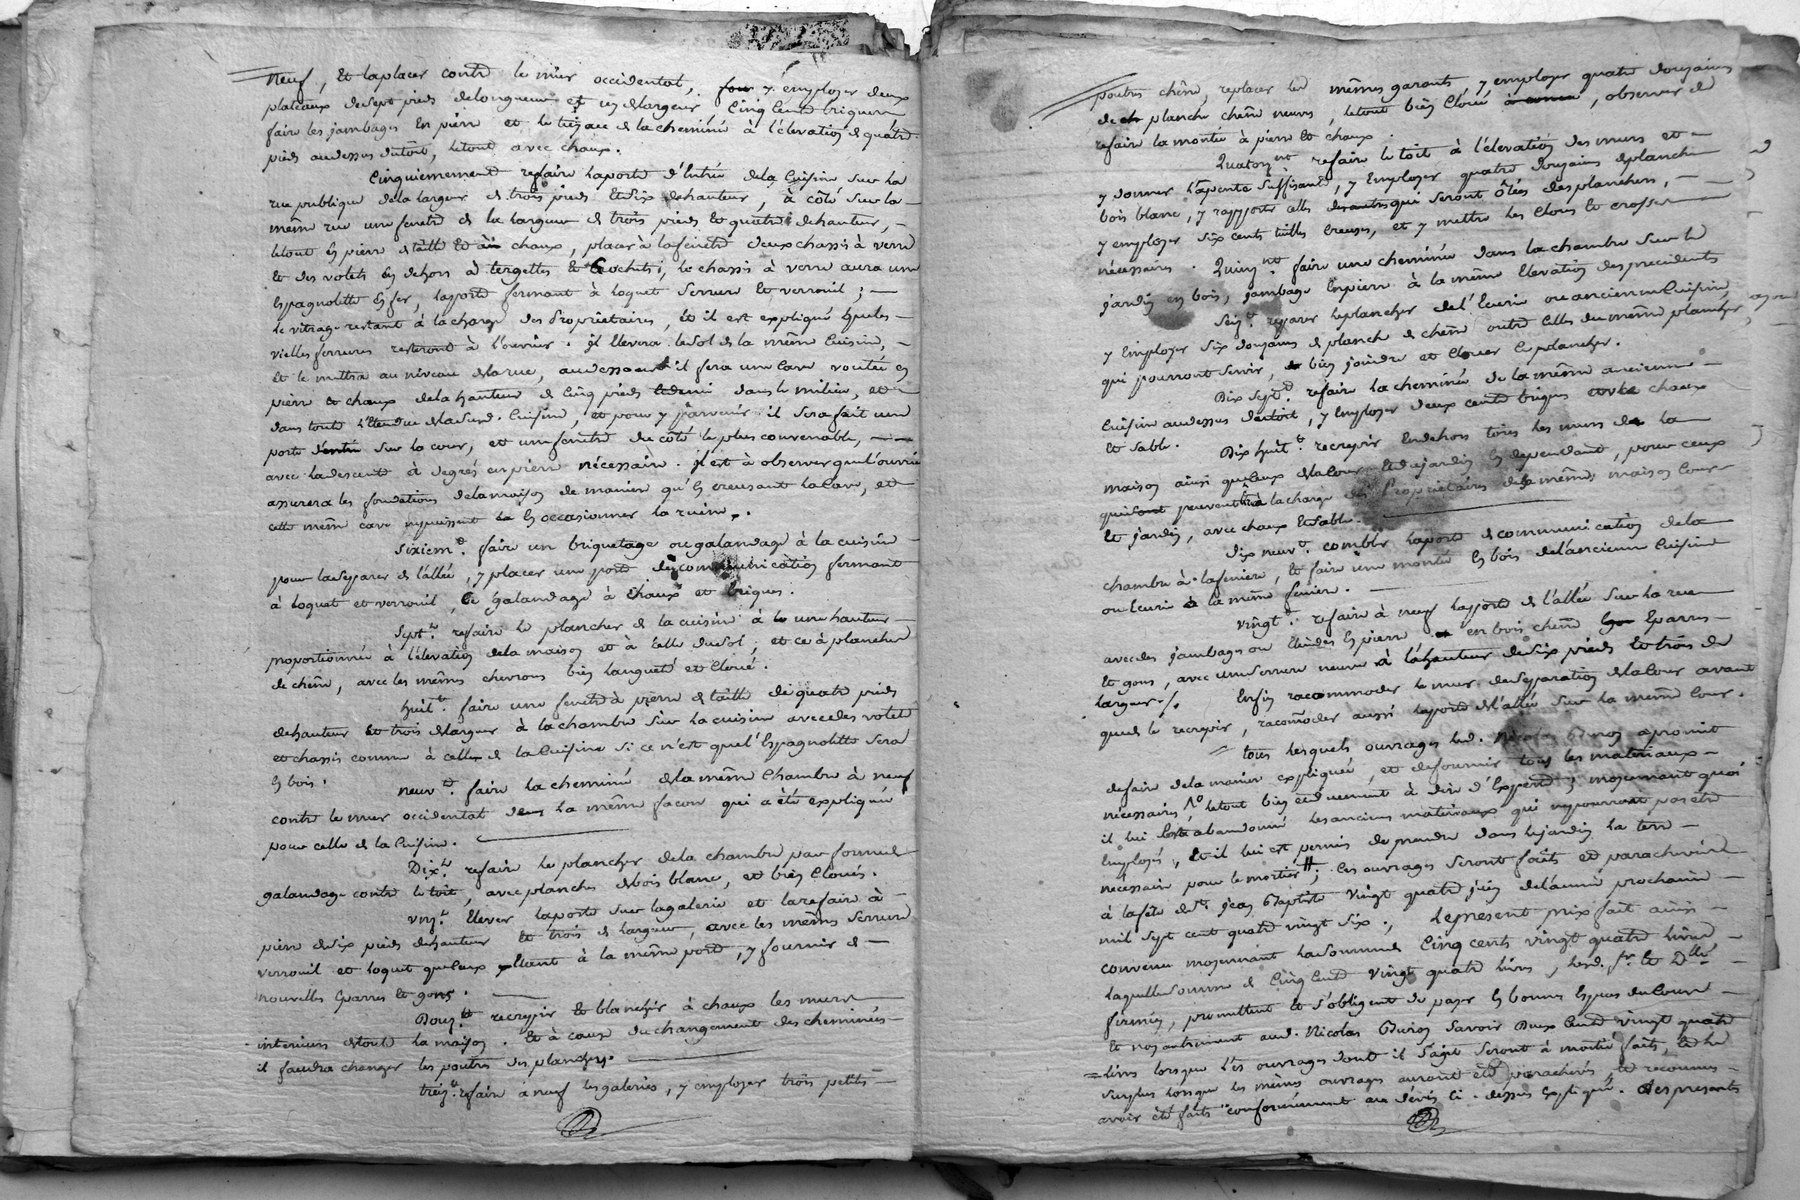 neuf, et la placer contre le mur occidental, y employer deux
plateaux de sept pieds de longueur et un de largeur Cinq cent briques
faire les jambages en pierre et le tuyau de la cheminée à l'élevation de quatre
pieds au dessus du toit, le tout avec chaux.
Cinquiemement refaire la porte d'Entrée de la Cuisine sur la
rue publique de la largeur de trois pieds et six de hauteur, à côté sur la
même rue une fenetre de la largeur de trois pieds et quatre de hauteur,
le tout en pierre de taille et à chaux, placer à la fenetre deux chassis à verre
et des volets en dehors à targettes et crochets, le chassis à verre aura une
Espagnolette en fer, la porte fermant à loquet serrure et verrouil;
le vitrage restant à la charge des Proprietaires, et il est expliqué que les
vielles ferrures resteront à l'ouvrier. il Elevera le sol de la même Cuisine,
et le mettra au niveau de la rue, au dessous il fera une Cave voutée en
pierre et chaux de la hauteur de cinq pieds et demi dans le milieu, et
dans toute l'Etendue de la susd. Cuisine, et pour y parvenir il sera fait une
porte d'entrée sur la cour, et une fenetre du côté le plus convenable,
avec la descente à degrés en pierre nécessaire. il est à observer que l'ouvrier
assurera les fondations de la maison de maniere qu'en creusant la Cave, et
cette même cave ne puissent en occasionner la ruine.
Sixiem.t faire un briquetage ou galandage à la cuisine
pour la séparer de l'allée, y placer une porte de communication fermant
à loquet et verrouil, Ce galandage à chaux et briques.
Sept.t refaire le plancher de la cuisine à une hauteur
proportionnée à l'élevation de la maison et à celle du sol; et ce à plancher
de chêne, avec les mêmes chevrons bien langueté et Cloué.
huit.t faire une fenetre à pierre de taille de quatre pieds
de hauteur et trois de largeur à la chambre sur la cuisine avec des volets
et chassis comme à celle de la Cuisine si ce n'est que l'Espagnolette sera
en bois.
neuv.t faire la cheminée de la même Chambre à neuf
contre le mur occidental dans la même façon qui a été expliquée
pour celle de la Cuisine.
Dix.t refaire le plancher de la chambre par forme de
galandage contre le toit, avec planches de bois blanc, et bien Cloués.
onz.t Elever la porte sur la galerie et la refaire à
pierre de six pieds de hauteur et trois de largeur, avec les mêmes serrure
verrouil et loquet que ceux étant à la même porte, y fournir de
nouvelles Eparres et gons.
Douz.t recrepir et blanchir à chaux les murs
interieurs de toute la maison. Et à cause du changement des cheminées
il faudra changer les poutres des planchers.
treiz.t refaire à neuf les galeries, y employer trois petits
poutres chêne, replacer les mêmes garants y employer quatre douzaines
de planche chêne neuves, le tout bien Cloué, observer de
refaire la montée à pierre et chaux.
Quatorz.nt refaire le toit à l'élevation des murs et
y donner la pente suffisante, y Employer quatre douzaines de planche
bois blanc, y rapporter celles qui seront ôtées des planchers,
y employer six cents tuilles creuses, et y mettre les Clous et crosses
nécessaires. Quinz.nt faire une cheminée dans la chambre sur le
jardin en bois, jambage en pierre à la même Elevation des precedents
Seiz.t reparer le plancher de l'Ecurie ou ancienne Cuisine
y Employer six douzaines de planche de chêne outre celles du même plancher
qui pourront servir, bien joindre et Clouer le plancher.
Dix sept.t refaire la cheminée de la même ancienne
Cuisine au dessus du toit, y Employer deux cents briques avec chaux
et sable. Dix huit.t recrepir en dehors tous les murs de la
maison ainsi que ceux de la Cour et du jardin en dependant, pour ceux
qui peuvent être à la charge des Proprietaires de la même maison Cour
et jardin, avec chaux et sable.
dix neuv.t combler la porte de communication de la
chambre à la feniere, et faire une montée en bois de l'ancienne Cuisine
ou Ecurie à la même feniere.
vingt.t refaire à neuf la porte de l'allée sur la rue
avec des jambages en pierre en bois chêne Eparres
et gons, avec une serrure neuve à la hauteur de six pieds et trois de
largeur. Enfin racommoder le mur de separation de la Cour avant
que de le recrepir, racomoder aussi la porte de l'allée sur la même Cour.
tous lesquels ouvrages led. Nicolas a promit
de faire de la maniere expliquée, et de fournir tous les materiaux
nécessaires, le tout bien et duement à dire d'Experts; moyennant quoi
il lui sera abandonné les anciens matériaux qui ne pourront pas être
Employés, et il lui est permis de prendre dans le jardin la terre
nécessaire pour le mortier; ces ouvrages seront faits et parachevés
à la fête de St. jean Baptiste vingt quatre juin de l'année prochaine
mil sept cent quatre vingt six; Le present prix fait ainsi
convenu moyennant la somme de Cinq cents vingt quatre livres
laquelle somme de Cinq cent vingt quatre livres, lesd. Sr. et Dlle
promettent et s'obligent de payer en bonnes Especes de Cours
et non autrement aud. Nicolas savoir Deux Cent vingt quatre
livres lorsque les ouvrages dont il s'agit seront à moitié faits, et le
surplus lorsque les mêmes ouvrages auront été parachevés, et reconnus
avoir été faits conformément au devis ci-dessus Expliqué. Les presents